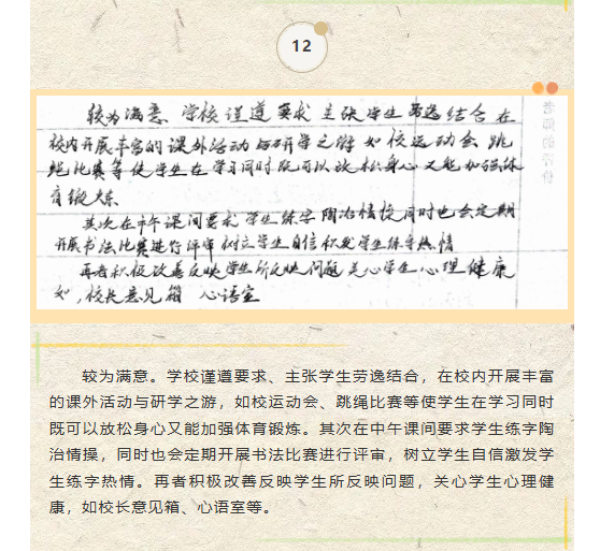 12
较为满意 学校谨遵要求 主张学生劳逸结合 在
校内开展丰富的课外活动与研学之游 如校运动会 跳
绳比赛等使学生在学习同时既可以放松身心又能加强体
育锻炼
其次在中午课间要求学生练字陶治情操同时也会定期
开展书法比赛进行评审树立学生自信积发学生练字热情
再者积极改善反映学生所反映问题 关心学生心理健康
如,校长意见箱 心语室
较为满意。学校谨遵要求、主张学生劳逸结合，在校内开展丰富
的课外活动与研学之游，如校运动会、跳绳比赛等使学生在学习同时
既可以放松身心又能加强体育锻炼。其次在中午课间要求学生练字陶
治情操，同时也会定期开展书法比赛进行评审，树立学生自信激发学
生练字热情。再者积极改善反映学生所反映问题，关心学生心理健
康，如校长意见箱、心语室等。